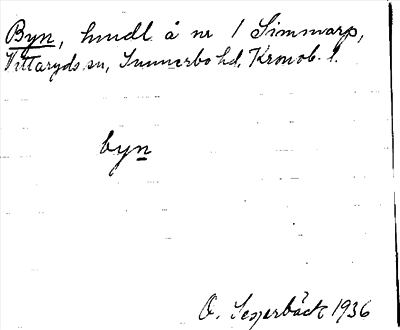 Byn, hmdl å nr 1 Simmarp,
Vittaryds sn, Sunnerbo hd, Kronob. l.
byn
O. Segerbäck 1936